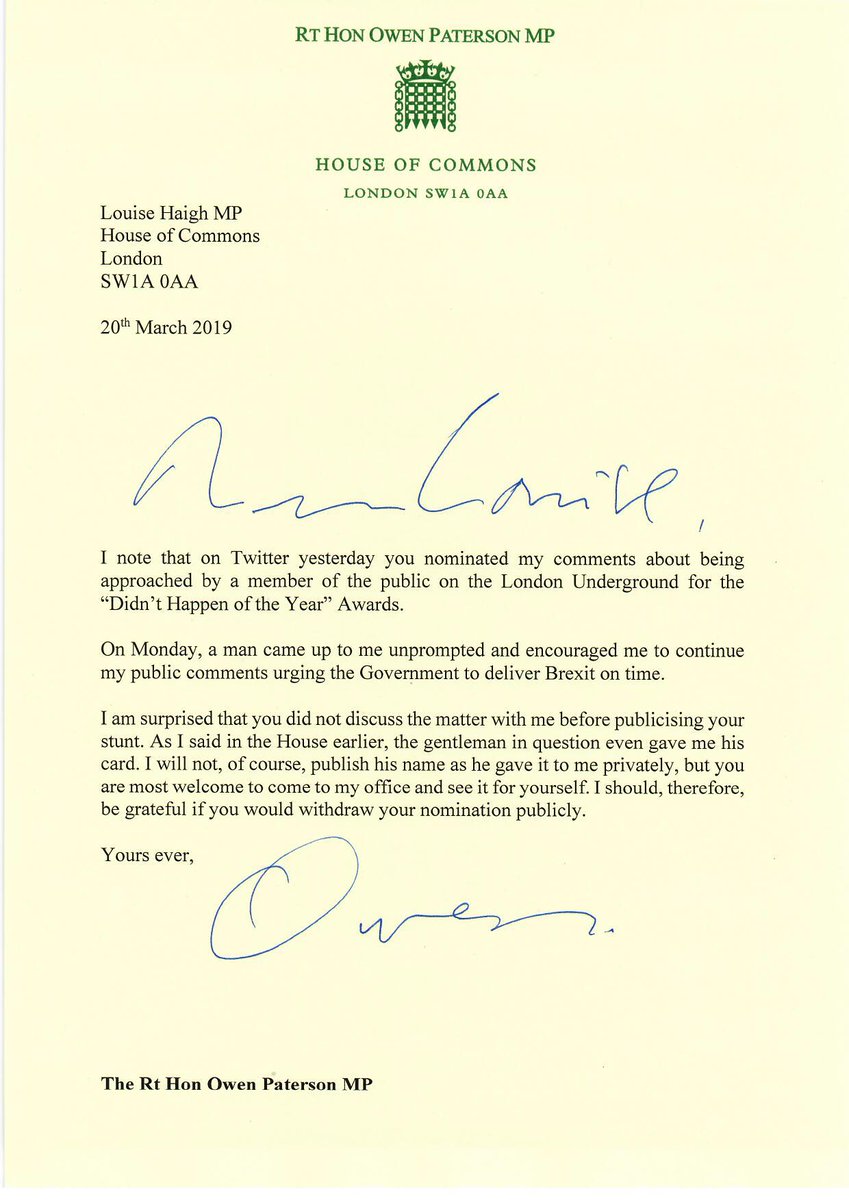 RT HON OWEN PATERSON MP
HOUSE OF COMMONS
LONDON SW1A 0AA
Louise Haigh MP
House of Commons
London
SW1A 0AA
20th March 2019
Louise,
I note that on Twitter yesterday you nominated my comments about being
approached by a member of the public on the London Underground for the
“Didn’t Happen of the Year” Awards.
On Monday, a man came up to me unprompted and encouraged me to continue
my public comments urging the Government to deliver Brexit on time.
I am surprised that you did not discuss the matter with me before publicising your
stunt. As I said in the House earlier, the gentleman in question even gave me his
card. I will not, of course, publish his name as he gave it to me privately, but you
are most welcome to come to my office and see it for yourself. I should, therefore,
be grateful if you would withdraw your nomination publicly.
Yours ever,
Owen.
The Rt Hon Owen Paterson MP